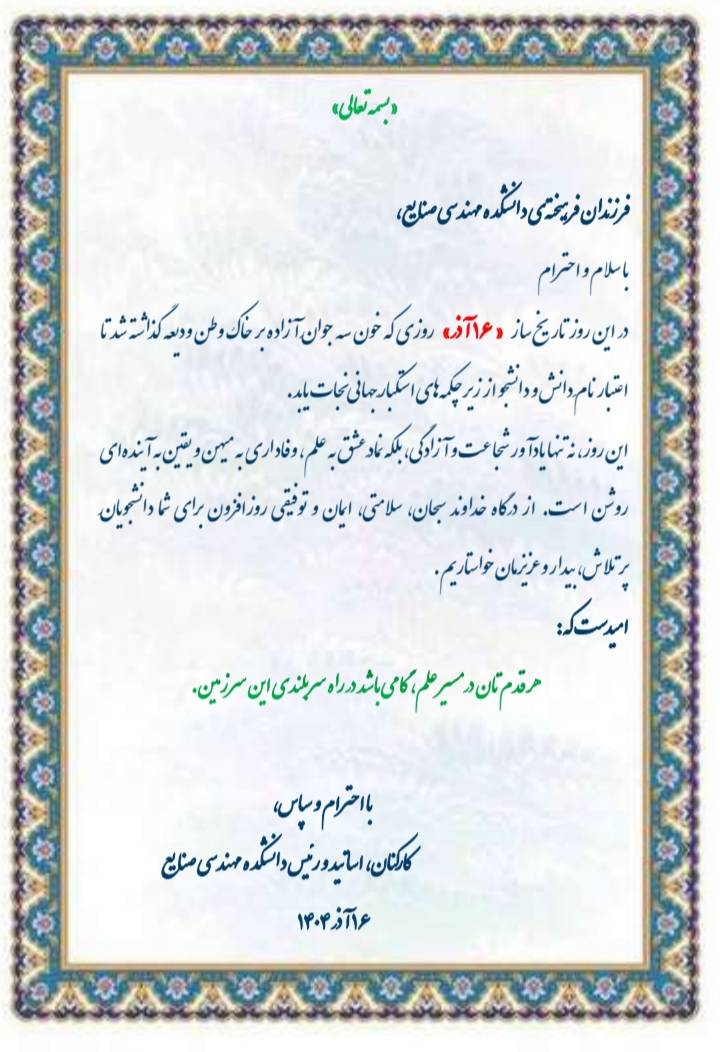 «بسمه تعالی»
فرزندان فرهیخته‌ی دانشکده مهندسی صنایع،
با سلام و احترام
در این روز تاریخ ساز «۱۶آذر» روزی که خون سه جوان آزاده بر خاک وطن ودیعه گذاشته شد تا
اعتبار نام دانش و دانشجو از زیر چکمه های استکبار جهانی نجات یابد.
این روز، نه تنها یادآور شجاعت و آزادگی، بلکه نماد عشق به علم، وفاداری به میهن و یقین به آینده‌ای
روشن است. از درگاه خداوند سبحان، سلامتی، ایمان و توفیقی روزافزون برای شما دانشجویان
پرتلاش، بیدار و عزیزمان خواستاریم.
امیدست که:
هر قدم تان در مسیر علم، گامی باشد در راه سربلندی این سرزمین.
با احترام و سپاس،
کارکنان، اساتید و رئیس دانشکده مهندسی صنایع
۱۶آذر ۱۴۰۴